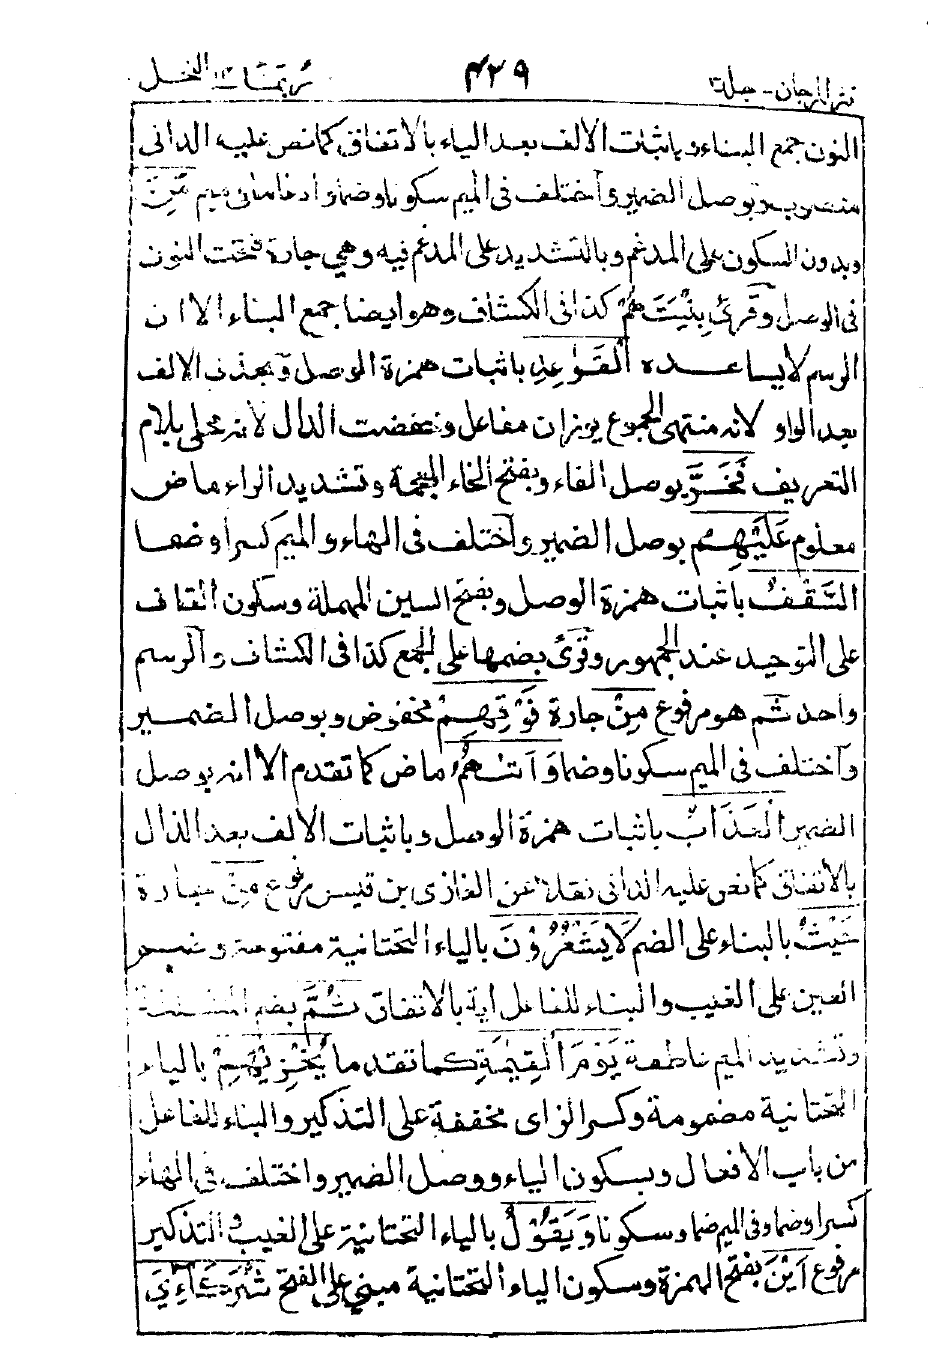 نثر المرجان - جلد ٣ ٤٢٩ ربما ١٤ النحل
النون جمع البناء وباثبات الالف بعد الياء بالاتفاق كما نص عليه الدانى
منصوب وبوصل الضمير واختلف فى الميم سكونا وضما وادغاما فى ميم مِّنَ
وبدون السكون على المدغم وبالتشديد على المدغم فيه وهي جارة فتحت النون
فى الوصل وقرئ بِنْيَتَهُمْ كذا فى الكشاف وهو ايضا جمع البناء الا ان
الرسم لا يساعده اَلْقَوَاعِدِ باثبات همزة الوصل وبحذف الالف
بعد الواو لانه منتهى الجموع يوزان مفاعل وخفضت الدال لانه محلى بلام
التعريف فَخَرَّ بوصل الفاء وبفتح الخاء المعجمة وتشديد الراء ماض
معلوم عَلَيْهِمُ بوصل الضمير واختلف فى الهاء والميم كسرا وضما
السَّقْفُ باثبات همزة الوصل وبفتح السين المهملة وسكون القاف
على التوحيد عند الجمهور وقرئ بضمها على الجمع كذا فى الكشاف والرسم
واحد ثم هو مرفوع مِنْ جارة فَوْقِهِمْ مخفوض وبوصل الضمير
واختلف فى الميم سكونا وضما وَاَتٰىهُمُ ماض كما تقدم الا انه بوصل
الضمير الْعَذَابُ باثبات همزة الوصل وباثبات الالف بعد الذال
بالاتفاق كما نص عليه الدانى نقلا عن الغازى بن قيس مرفوع مِنْ جارة
حَيْثُ بالبناء على الضم لَا يَشْعُرُوْنَ بالياء التحتانية مفتوحة وضم
العين على الغيب والبناء للفاعل اية بالاتفاق ثُمَّ بضم المثلثة
وتشديد الميم عاطفة يَوْمَ الْقِيٰمَةِ كما تقدما يُخْزِيْهِمْ بالياء
التحتانية مضمومة وكسر الزاى مخففة على التذكير والبناء للفاعل
من باب الافعال وبسكون الياء ووصل الضمير واختلف فى الهاء
كسرا وضما وفى الميم ضما وسكونا وَيَقُوْلُ بالياء التحتانية على الغيب والتذكير
مرفوع اَيْنَ بفتح الهمزة وسكون الياء التحتانية مبني على الفتح شُرَكَآءِيَ